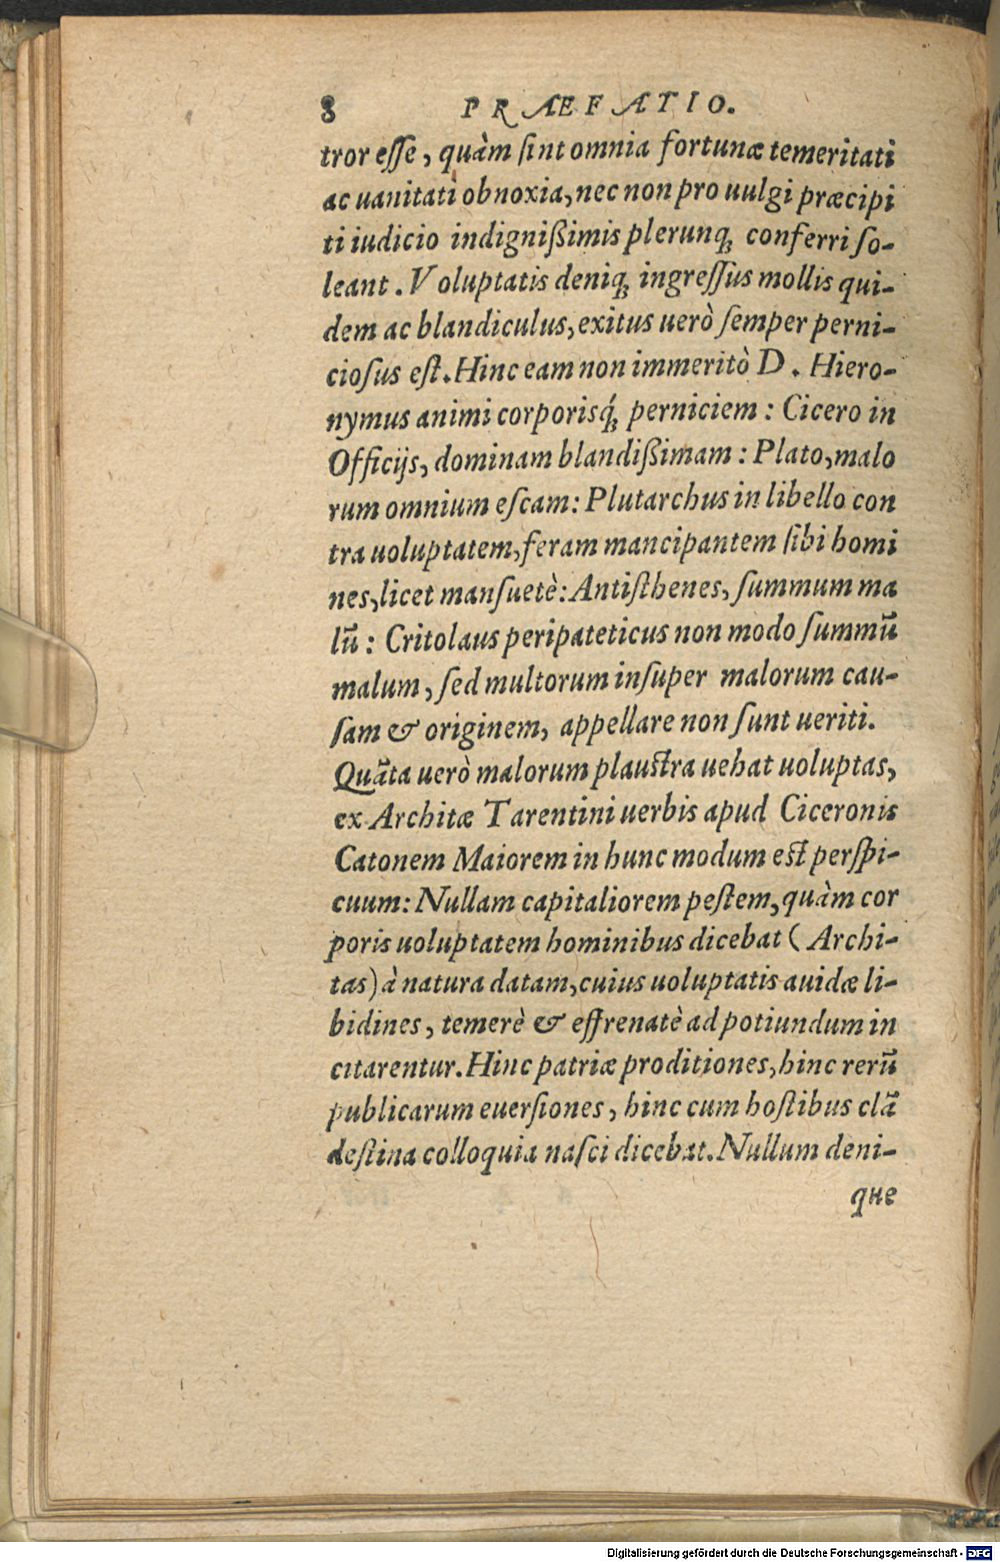 8 PRÆFATIO.
tror eſſe, quàm ſint omnia fortunæ temeritati
ac uanitati obnoxia, nec non pro uulgi præcipi
ti iudicio indignißimis plerunq́; conferri ſo-
leant. Voluptatis deniq; ingreſſus mollis qui-
dem ac blandiculus, exitus uerò ſemper perni-
cioſus eſt. Hinc eam non immeritò D. Hiero-
nymus animi corporisq́; perniciem: Cicero in
Officijs, dominam blandißimam: Plato, malo
rum omnium eſcam: Plutarchus in libello con
tra uoluptatem, feram mancipantem ſibi homi
nes, licet manſuetè: Antiſthenes, ſummum ma
lũ: Critolaus peripateticus non modo ſummũ
malum, ſed multorum inſuper malorum cau-
ſam & originem, appellare non ſunt ueriti.
Quãta uerò malorum plauſtra uehat uoluptas,
ex Architæ Tarentini uerbis apud Ciceronis
Catonem Maiorem in hunc modum eſt perſpi-
cuum: Nullam capitaliorem peſtem, quàm cor
poris uoluptatem hominibus dicebat (Archi-
tas) à natura datam, cuius uoluptatis auidæ li-
bidines, temerè & effrenatè ad potiundum in
citarentur. Hinc patriæ proditiones, hinc rerũ
publicarum euerſiones, hinc cum hoſtibus clã
deſtina colloquia naſci dicebat. Nullum deni-
que
Digitalisierung gefördert durch die Deutsche Forschungsgemeinschaft - DFG